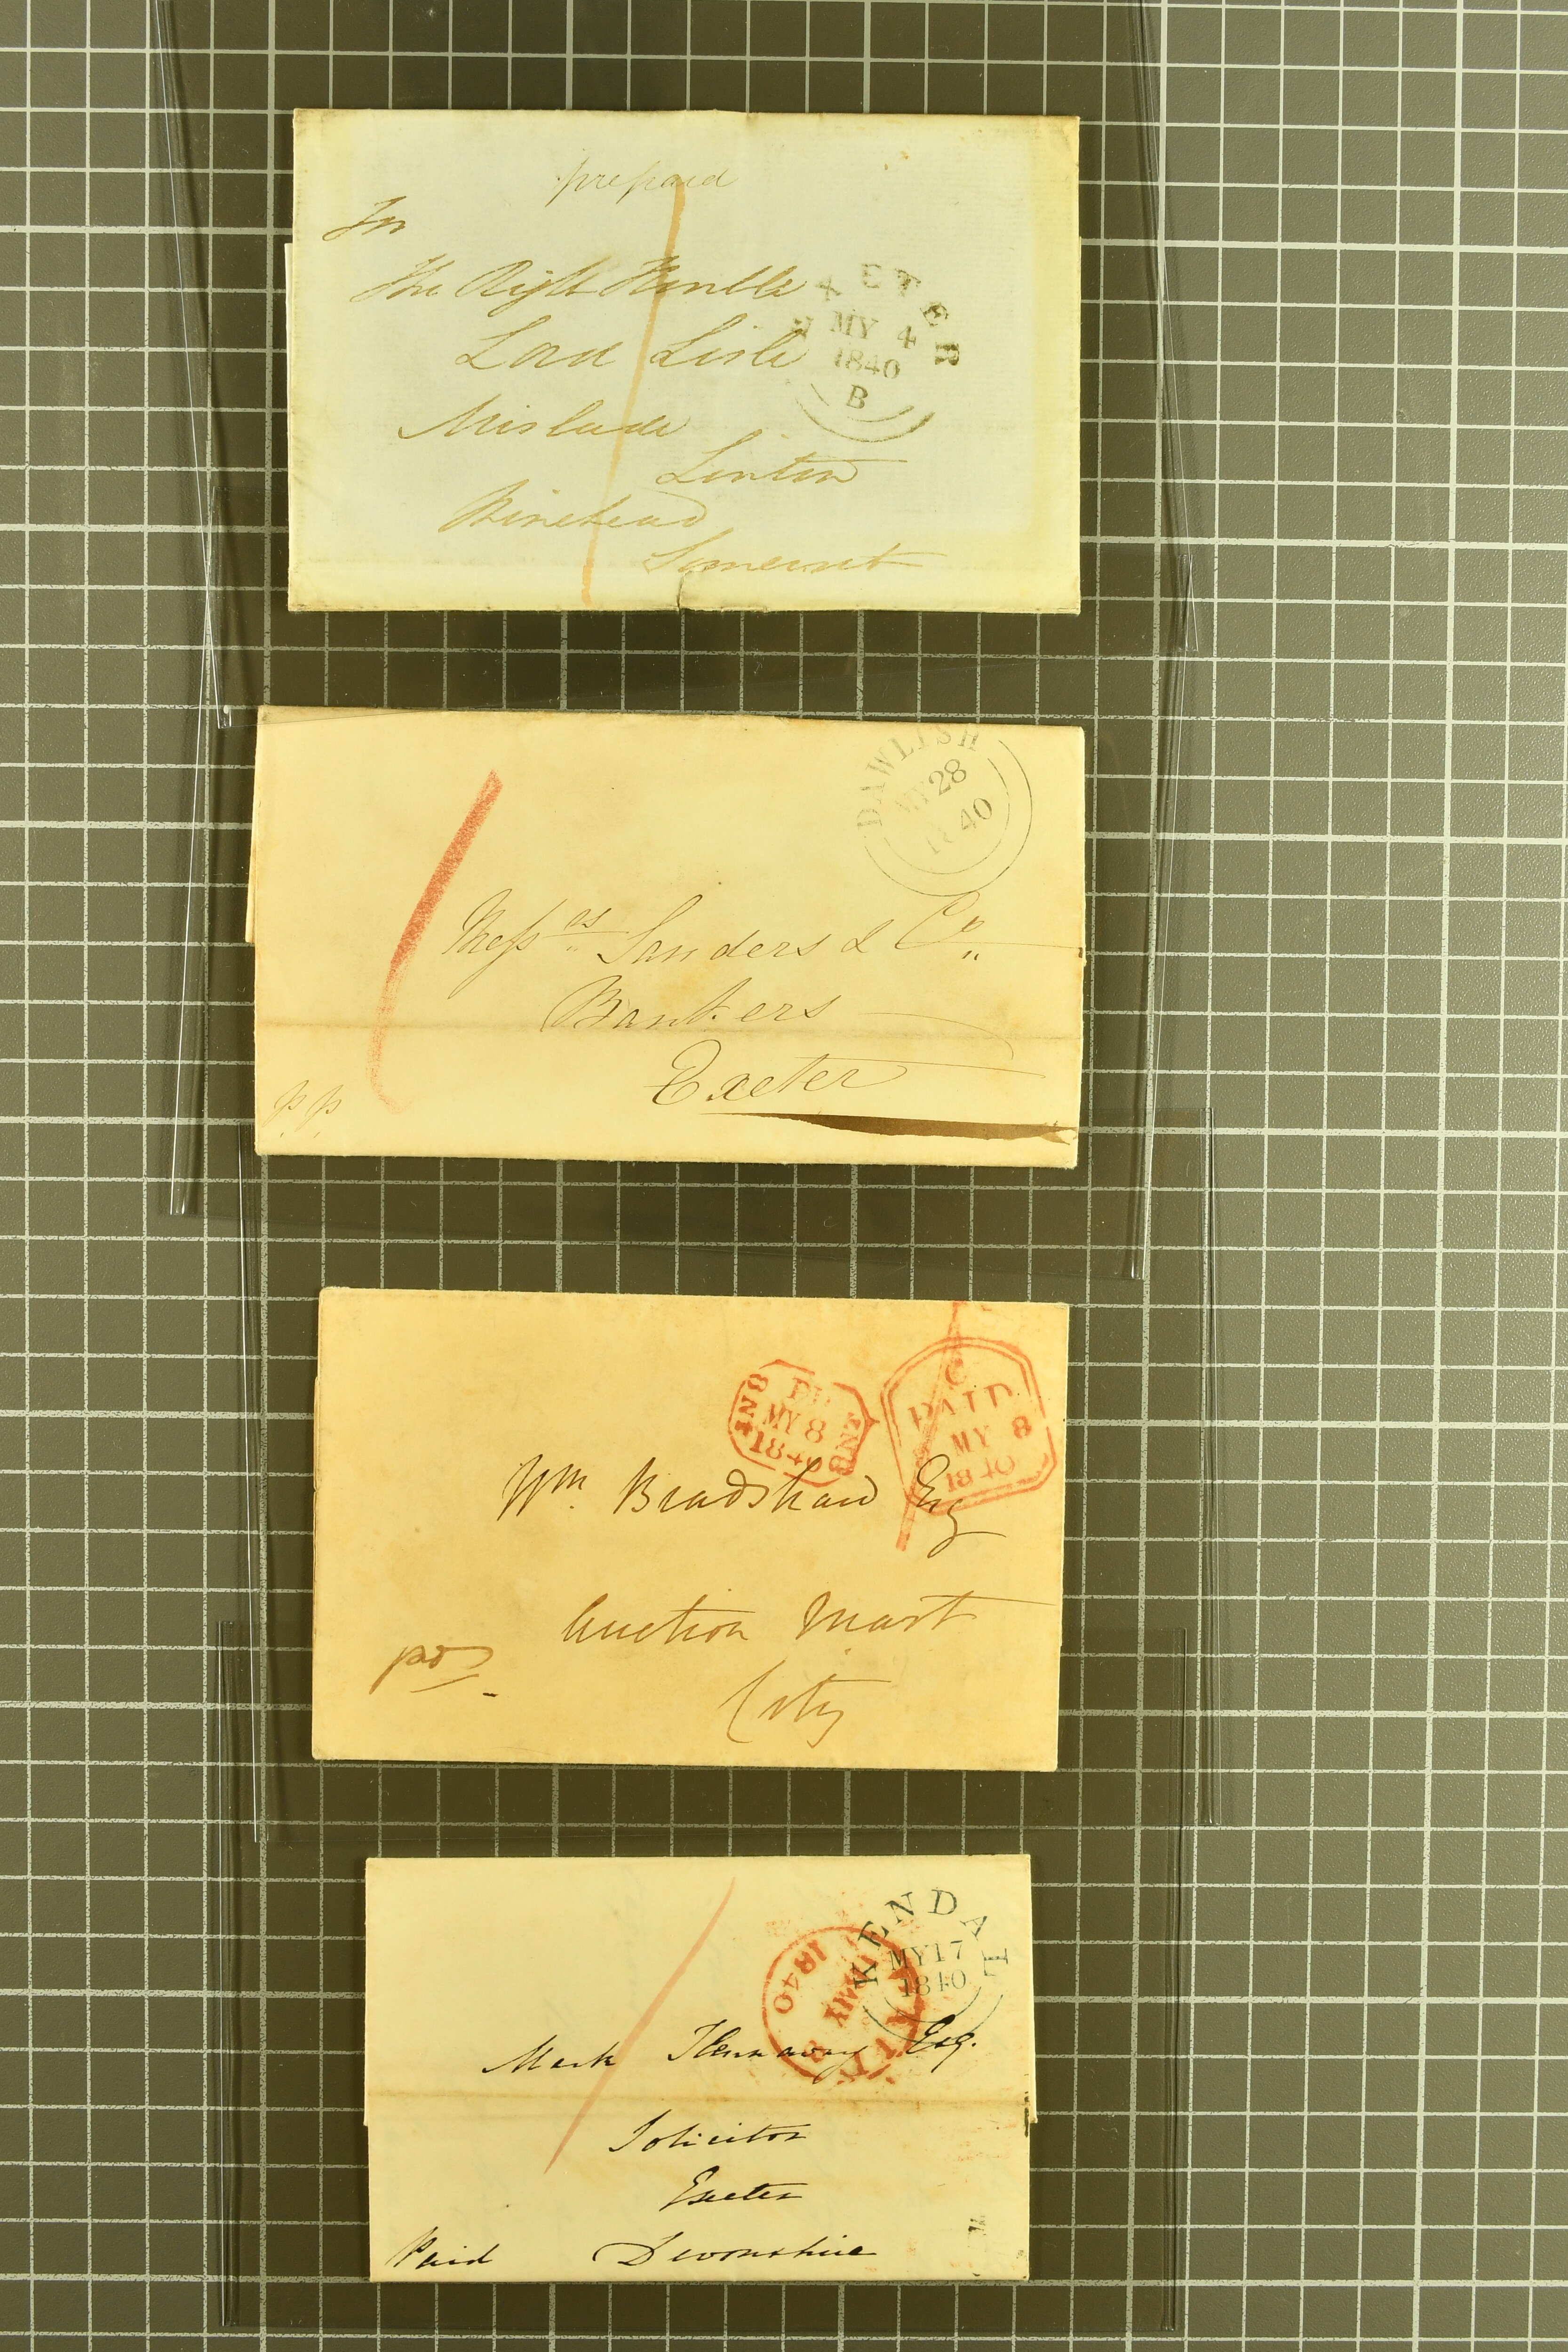 prepaid
1
The Right Honble
EXETER
MY 4
1840
B
Lord Lisle
Linton
Minehead
Somerset
DAWLISH
MY 28
1840
1
Messrs Sanders & Co.
Bankers
Exeter
pp
8NT PD 8NT
MY 8
1840
C
PAID
MY 8
1840
1
Wm. Bradshaw Esq
Auction Mart
pd
City
KENDAL
MY 17
1840
1840
1
Mark Kennaway Esq.
Solicitor
Exeter
Paid Devonshire